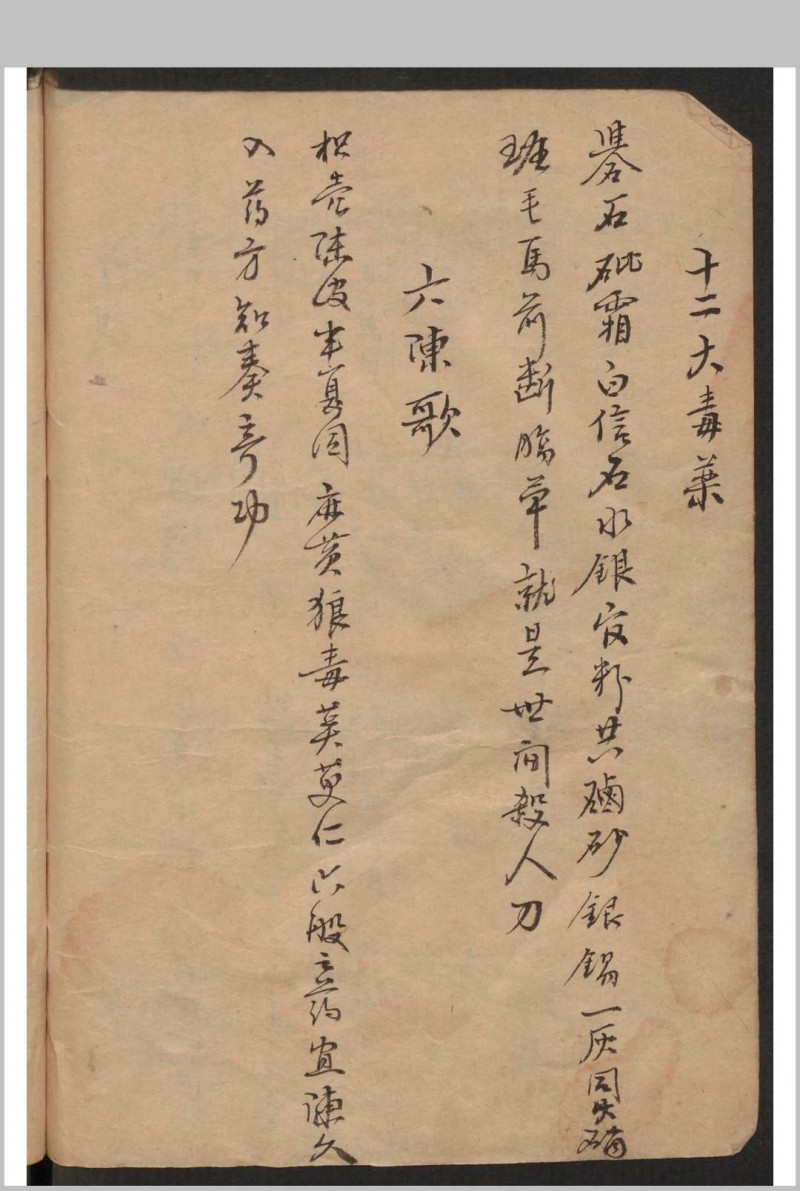 十二大毒薬
礜石砒霜白信石水銀官粉共磠砂銀錫一灰同其硇
班毛馬前断腸草就是世间殺人刀
六陳歌
枳壳陈皮半夏同麻黄狼毒英萸仁六般之药宜陳久
入药方知奏奇功